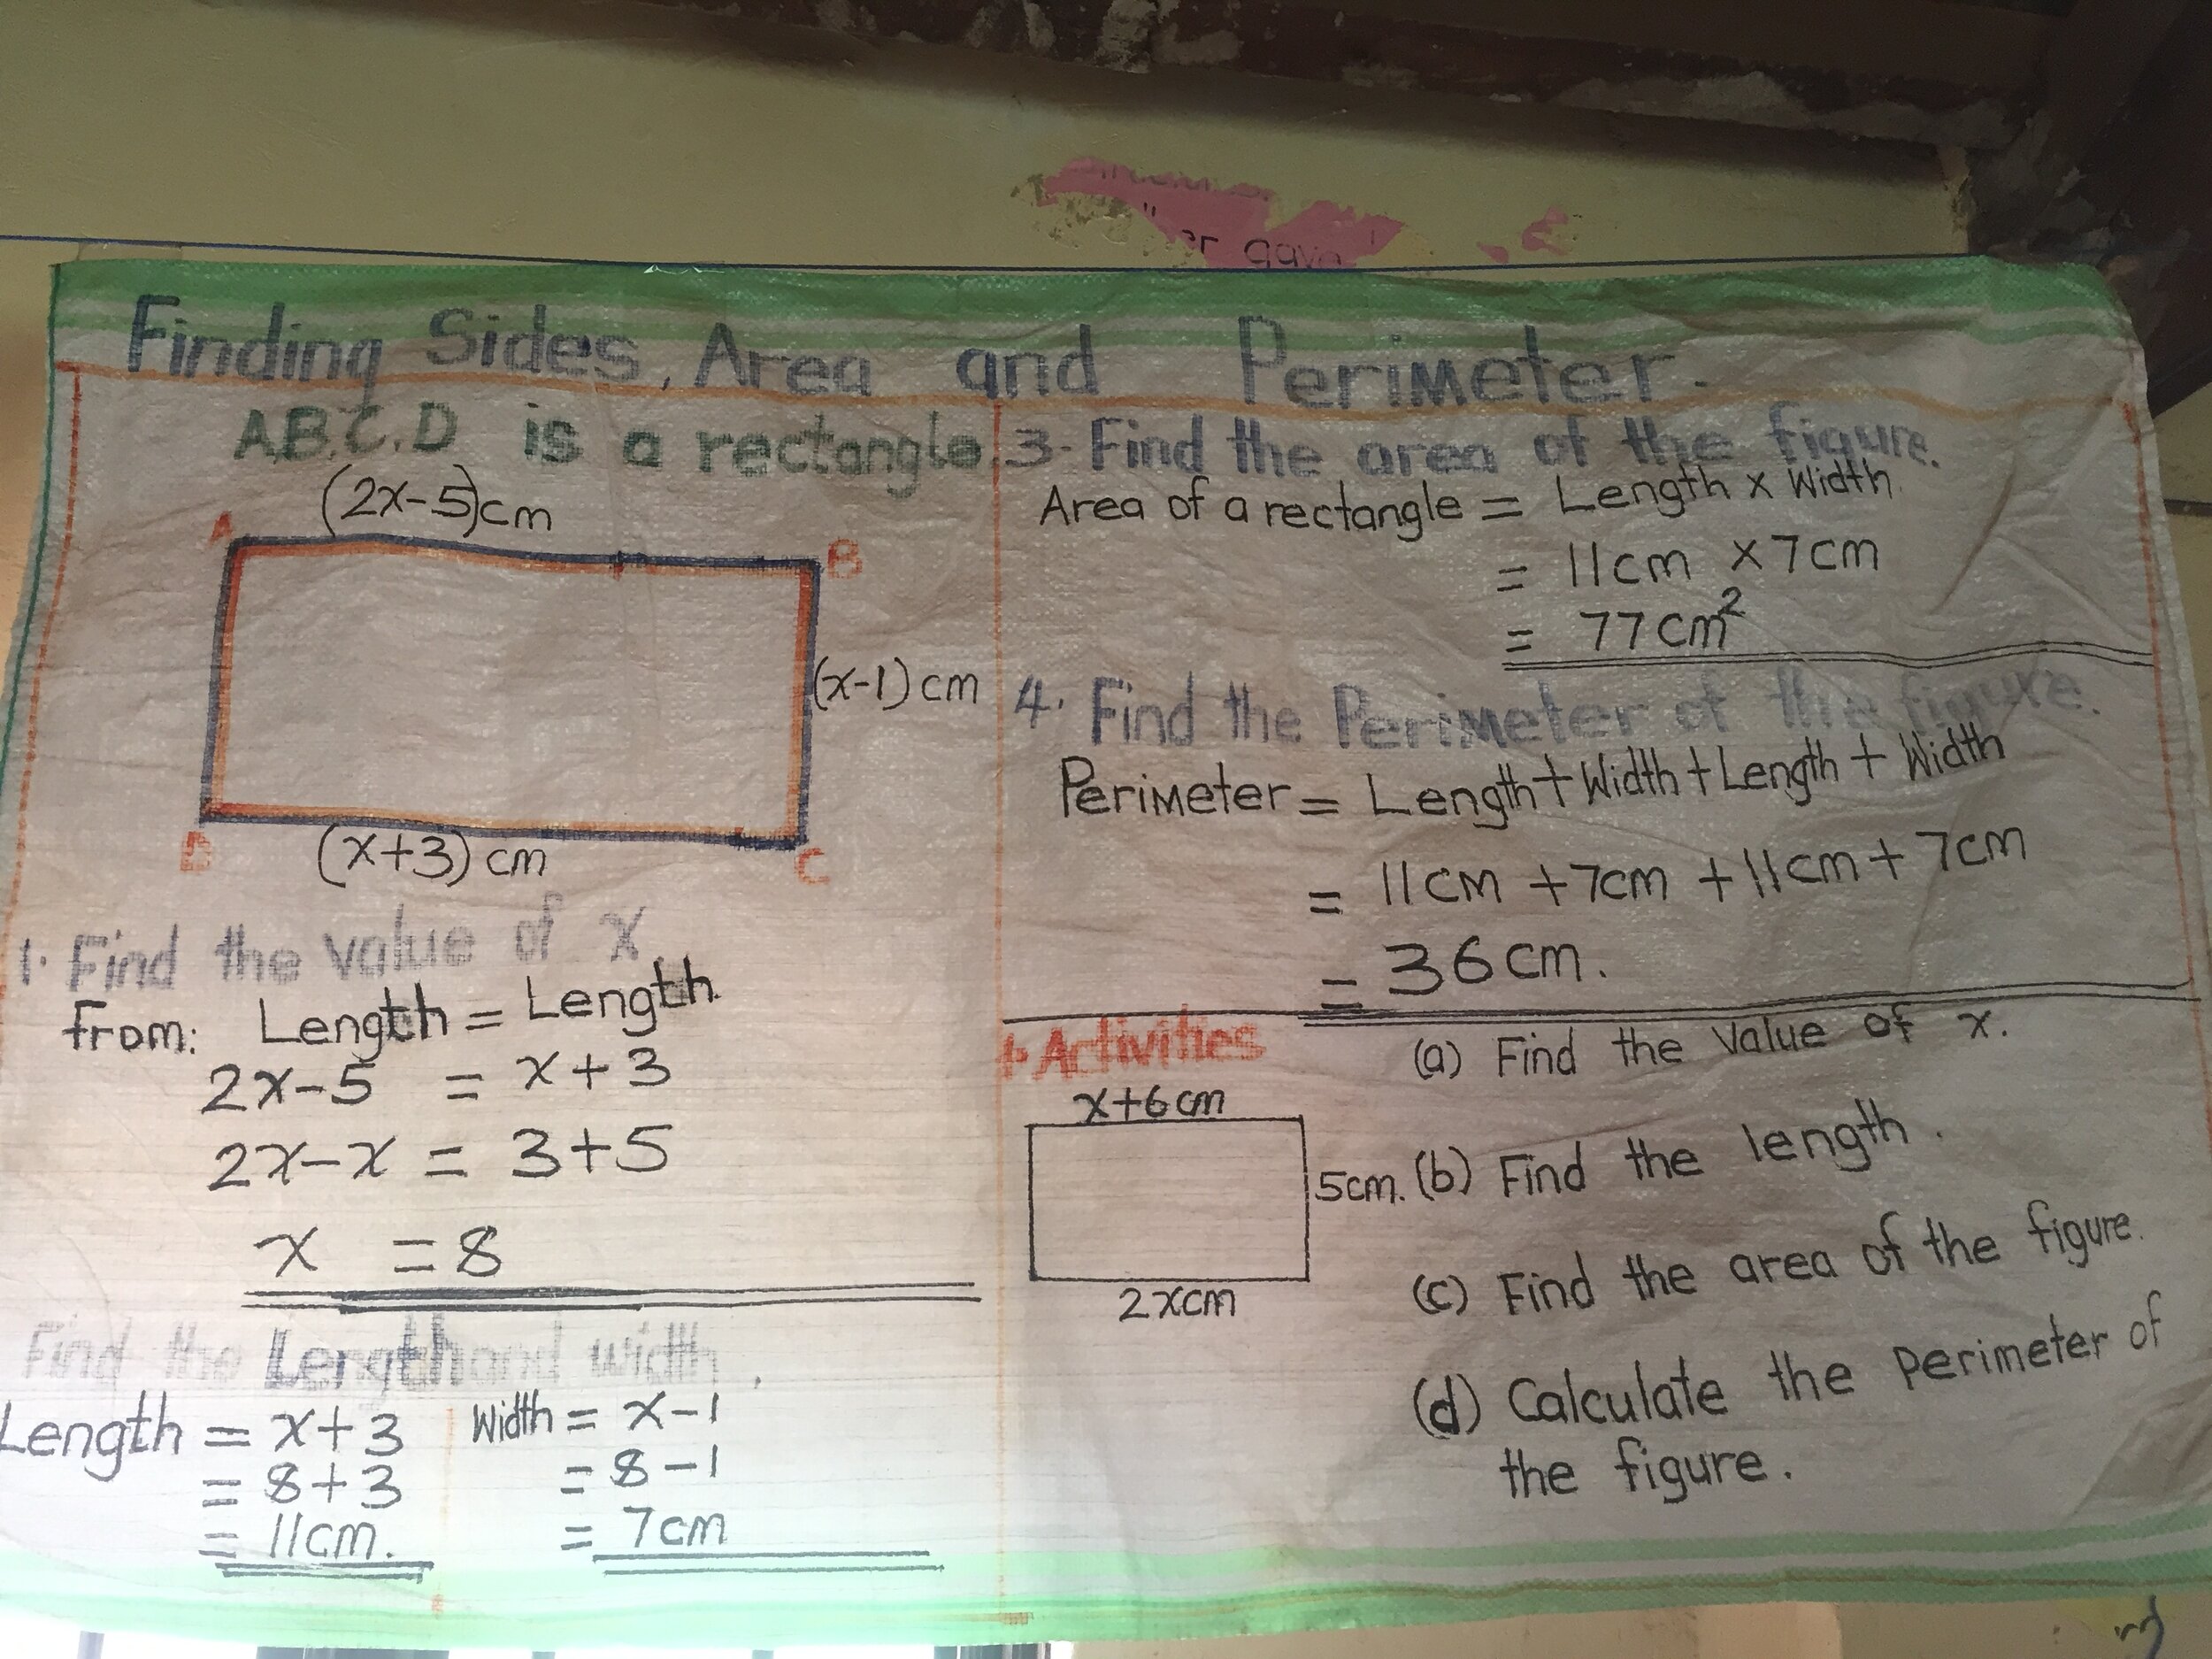 er gave
Finding Sides, Area and Perimeter.
A.B.C.D is a rectangle.
(2x-5)cm
A
B
(x-1)cm
D
C
(x+3)cm
1. Find the value of x
from: Length = Length
2x-5 = x+3
2x-x = 3+5
x = 8
Find the Length and width.
Length = x+3
= 8+3
= 11cm.
Width = x-1
= 8-1
= 7cm
3. Find the area of the figure.
Area of a rectangle = Length x Width.
= 11cm x 7cm
= 77cm²
4. Find the Perimeter of the figure.
Perimeter = Length + Width + Length + Width
= 11cm + 7cm + 11cm + 7cm
= 36cm.
Activities
x+6cm
5cm.
2xcm
(a) Find the value of x.
(b) Find the length.
(c) Find the area of the figure.
(d) Calculate the perimeter of
the figure.